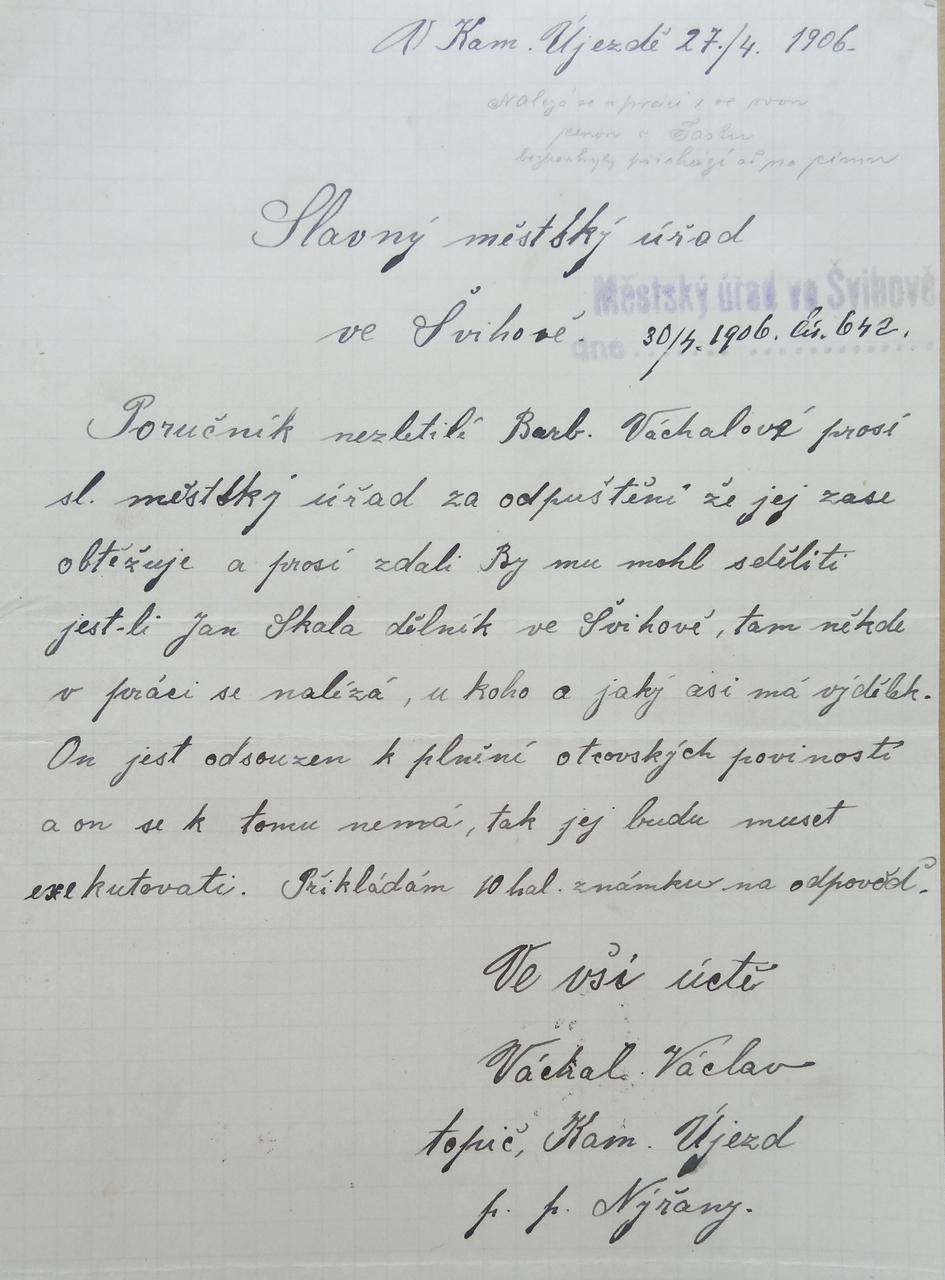 V Kam. Újezdě 27./4. 1906.
Nalezá se v práci i se svou
ženou v
na zimu
Slavný městský úřad
Městský úřad ve Švihově
ve Švihově.
dne 30/4. 1906. Čís. 642.
Poručník nezletilé Barb. Váchalové prosí
sl. městský úřad za odpuštění že jej zase
obtěžuje a prosí zdali By mu mohl sděliti
jest-li Jan Skala dělník ve Švihově, tam někde
v práci se nalézá, u koho a jaký asi má výdělek.
On jest odsouzen k plnění otcovských povinností
a on se k tomu nemá, tak jej budu muset
exekutovati. Přikládám 10 hal. známku na odpověď.
Ve vší úctě
Váchal Václav
topič, Kam. Újezd
p. p. Nýřany.